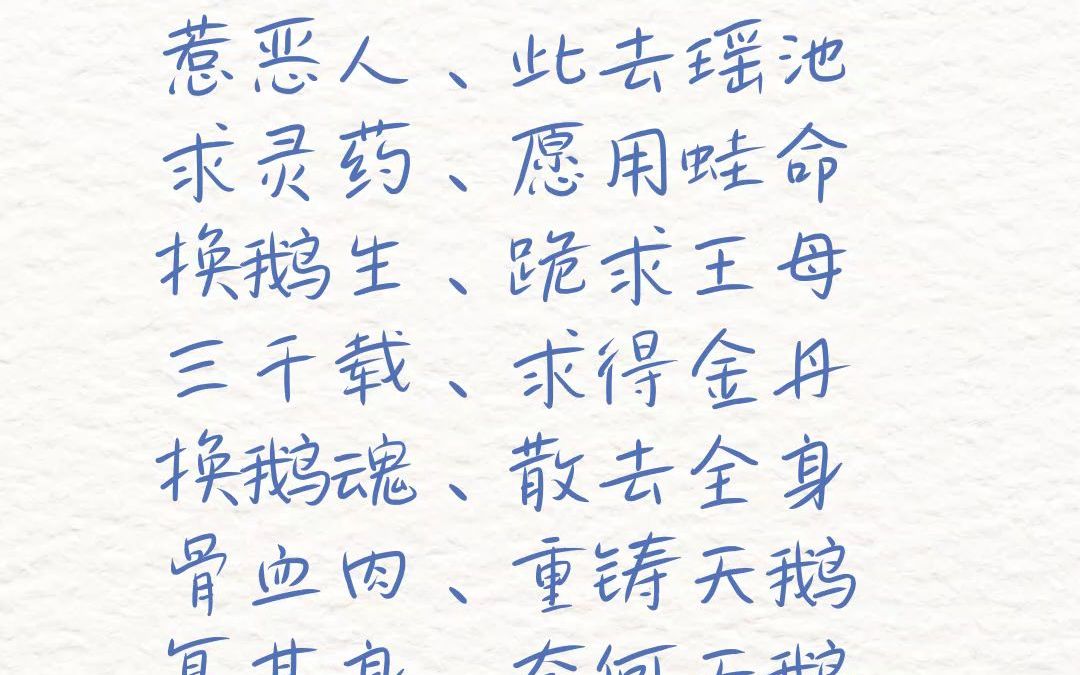 惹恶人、此去瑶池
求灵药、愿用蛙命
换鹅生、跪求王母
三千载、求得金丹
换鹅魂、散去全身
骨血肉、重铸天鹅
复其身、奈何天鹅